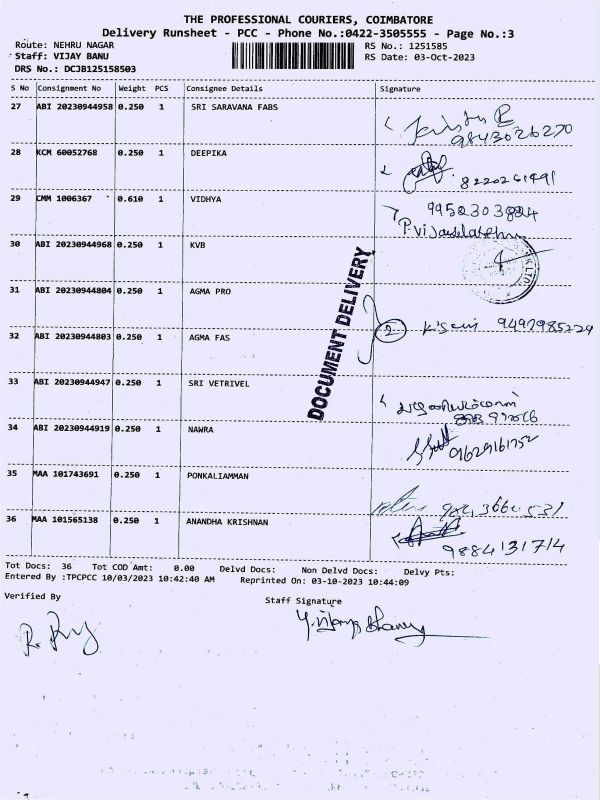 THE PROFESSIONAL COURIERS, COIMBATORE
Delivery Runsheet - PCC - Phone No.:0422-3505555 - Page No.:3
Route: NEHRU NAGAR RS No.: 1251585
Staff: VIJAY BANU RS Date: 03-Oct-2023
DRS No.: DCJB125158503
S No Consignment No Weight PCS Consignee Details Signature
27 ABI 20230944958 0.250 1 SRI SARAVANA FABS
9843026270
28 KCM 60052768 0.250 1 DEEPIKA
8220261491
29 CMM 1006367 0.610 1 VIDHYA 9952303884
P.Vijayalakshmi
30 ABI 20230944968 0.250 1 KVB
DOCUMENT DELIVERY
31 ABI 20230944804 0.250 1 AGMA PRO
2 9497985229
32 ABI 20230944803 0.250 1 AGMA FAS
33 ABI 20230944947 0.250 1 SRI VETRIVEL
34 ABI 20230944919 0.250 1 NAWRA
01629161752
35 MAA 101743691 0.250 1 PONKALIAMMAN
36 MAA 101565138 0.250 1 ANANDHA KRISHNAN
9884131714
Tot Docs: 36 Tot COD Amt: 0.00 Delvd Docs: Non Delvd Docs: Delvy Pts:
Entered By :TPCPCC 10/03/2023 10:42:40 AM Reprinted On: 03-10-2023 10:44:09
Verified By Staff Signature